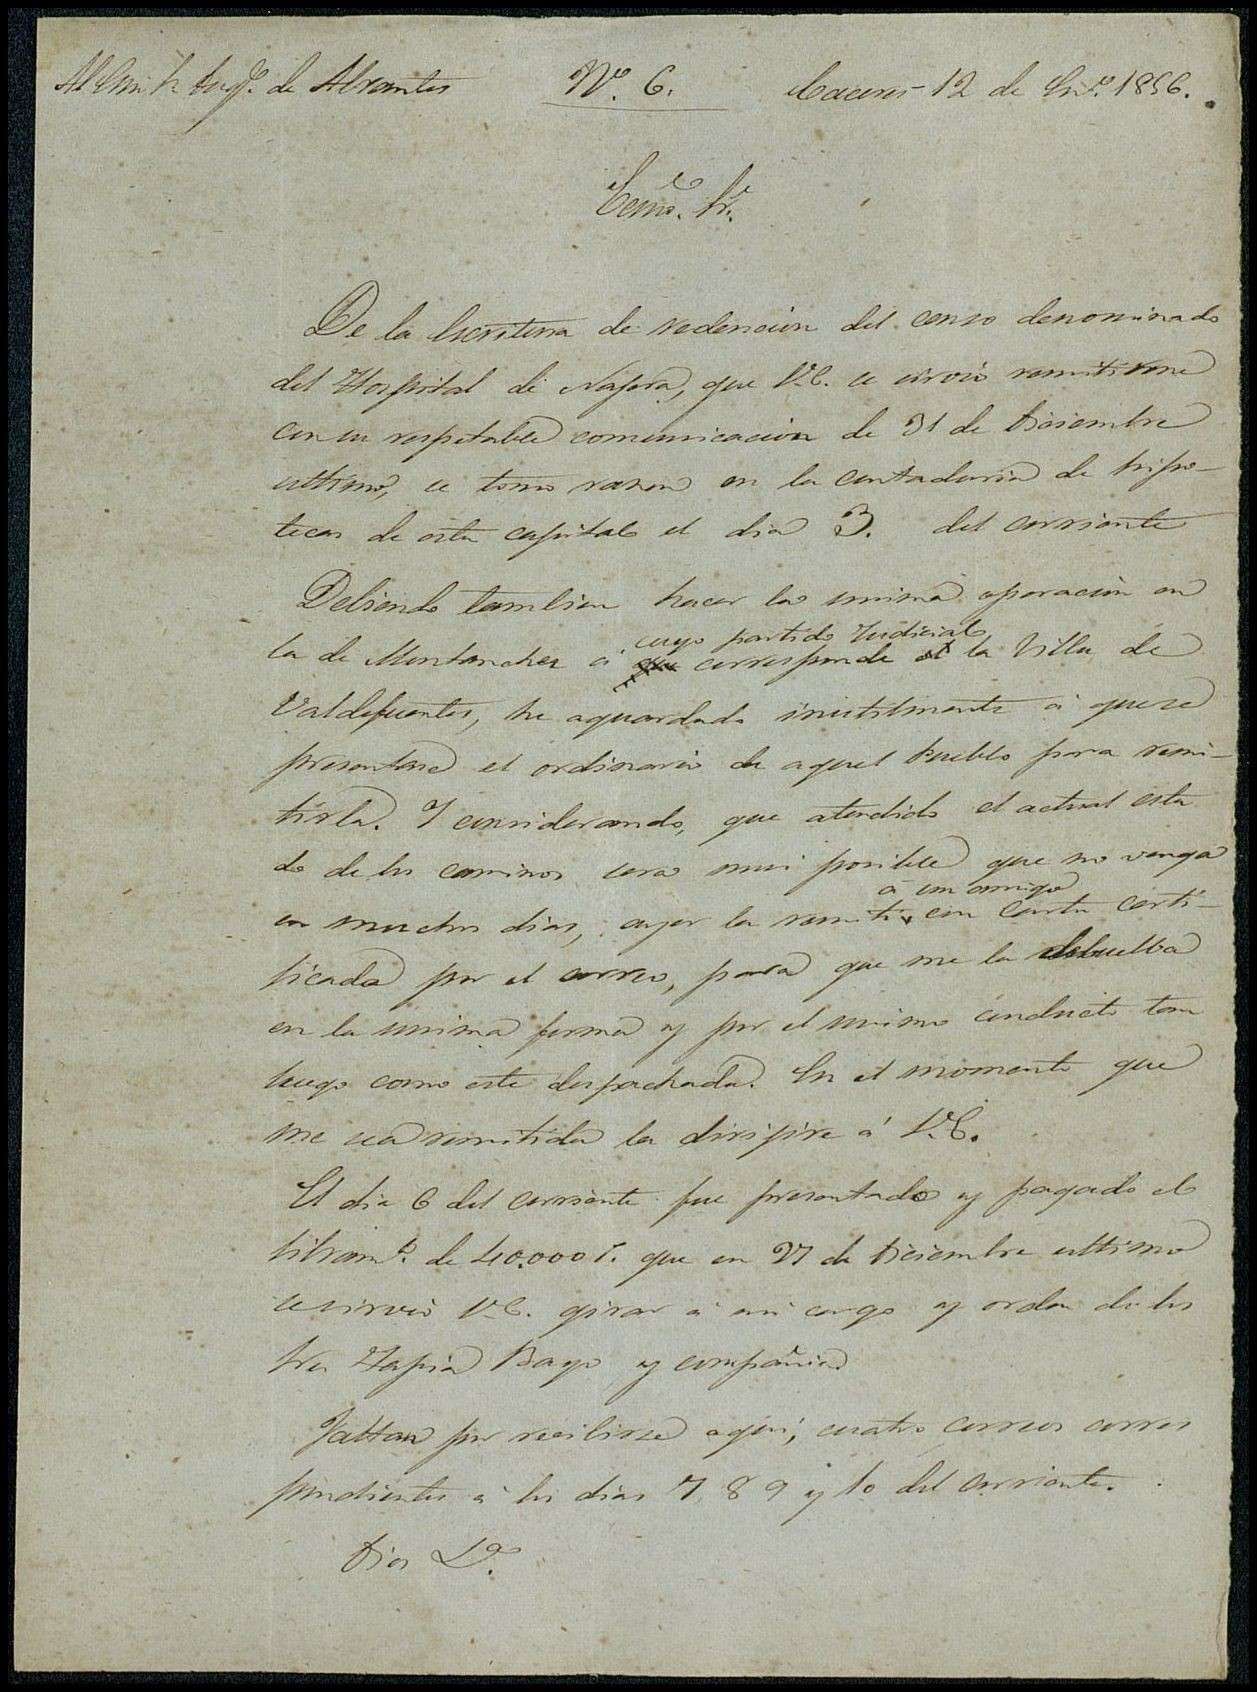 Al Exmo Sr Duq.e de Abrantes Nº. 6. Caceres 12 de En.º 1856.
Exmo. Sr.
De la Escritura de redencion del censo denominado
del Hospital de Nagera, que V.E. se sirvió remitirme
con su respetable comunicacion de 31 de Diciembre
ultimo, se tomó razon en la contaduria de hipo-
tecas de esta capital el dia 3. del corriente
Debiendo tambien hacer la misma operacion en
cuyo partido Judicial
la de Montanchez á corresponde la Villa de
Valdefuentes, he aguardado inutilmente á que se
presentase el ordinario de aquel Pueblo para remi-
tirla. Y considerando, que atendido el actual esta
do de los caminos sera mui posible que no venga
á un amigo
en muchos dias, ayer la remiti con carta certi-
ficada por el correo, para que me la debuelba
en la misma forma y por el mismo conducto tan
luego como esté despachada. En el momento que
me sea remitida la dirigire á V.E.
El dia 6 del corriente fue presentado y pagado el
libram.to de 40.000 r. que en 27 de Diciembre ultimo
se sirvió V.E. girar á mi cargo y orden de los
Sres Tapia Bayo y compañia
Faltan por recibirse aqui, cuatro correos corres
pondientes á los dias 7 8 9 y 10 del corriente.
Dios L.ª